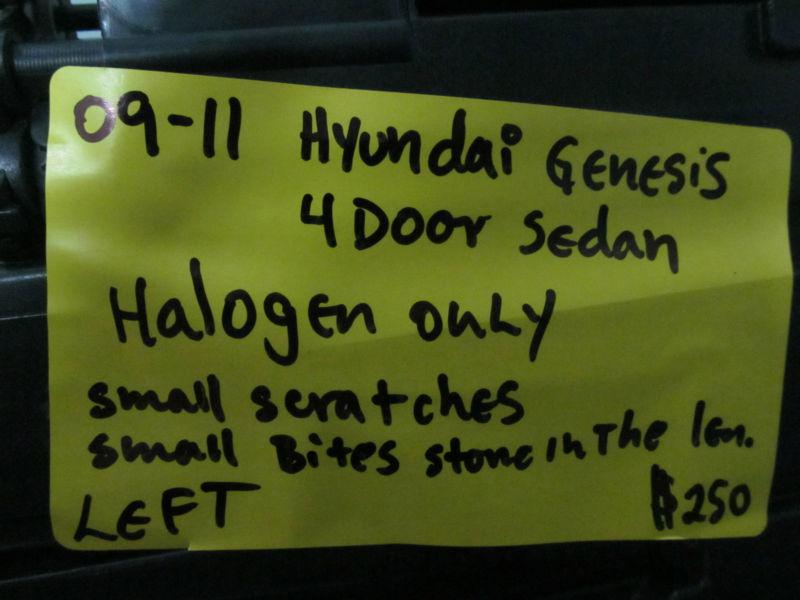 09-11 Hyundai Genesis
4 Door Sedan
Halogen only
small scratches
small Bites stone in The len.
LEFT $250